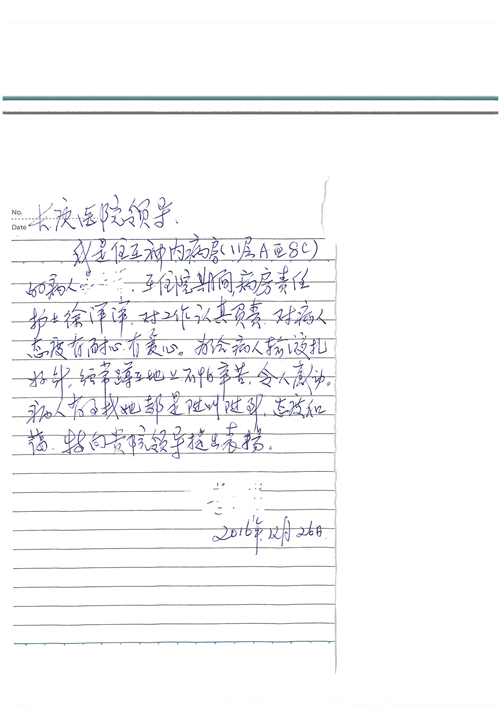 No.
Date
长庚医院领导
我是住在神内病房(11层A区8C)
的病人 在住院期间,病房责任
护士徐洋洋,对工作认真负责,对病人
态度有耐心,有爱心。为给病人输液扎
好针,经常蹲在地上不怕辛苦,令人感动。
病人有事找她都是随叫随到,态度和
蔼,特向贵院领导提出表扬。
2016年12月26日